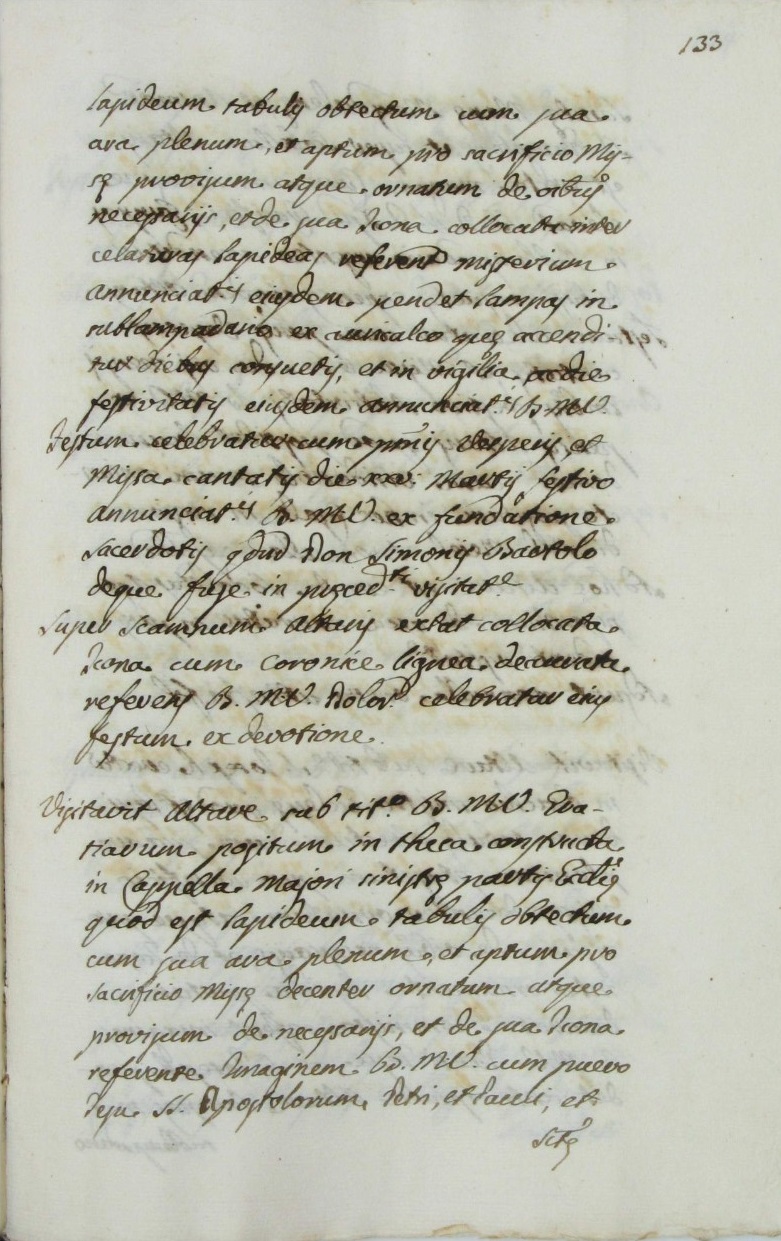 133
lapideum tabulis obtectum cum sua
ara plenum, et aptum pro sacrificio Mis-
sę provisum atque ornatum de oibus
necessarijs, et de sua Icona collocata inter
celaturas lapideas referent misterium
annunciat.s eiusdem pendet lampas in
sublampadario ex auricalco quę accendi-
tur diebus consuetis, et in vigilia, ac die
festivitatis eiusdem annunciat.s B. M. V.
Festum celebratur cum prmis Vesperis et
Missa cantatis die xxv: Martij festivo
annunciat.s B. M. V. ex fundatione
sacerdotis qdud Don Simonis Bartolo
deque fuse in pręced.ti visitat.e
Super scamnum Altaris extat collocata
Icona cum coronice lignea deaurata
referens B. M. V. Dolor. celebratur eius
festum ex devotione.
Visitavit Altare sub tit.o B. M. V. Gra-
tiarum positum in theca constructa
in Cappella majori sinistrę partis Ecclię
quod est lapideum tabulis obtectum
cum sua ara plenum, et aptum pro
sacrificio Missę decenter ornatum atque
provisum de necessarijs, et de sua Icona
referente Imaginem B. M. V. cum puero
Jesu SS. Apostolorum Petri, et Pauli, et
Sctę